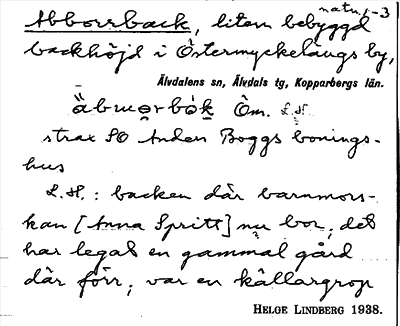 natn. 1-3
Abborrback, liten bebyggd
backhöjd i Östermyckelängs by,
Älvdalens sn, Älvdals tg, Kopparbergs län.
Öm. L.H.
strax SO Anders Boggs bonings-
hus
L.H.: backen där barnmors-
kan [Anna Spritt] nu bor, det
har legat en gammal gård
där förr, var en källargrop
HELGE LINDBERG 1938.